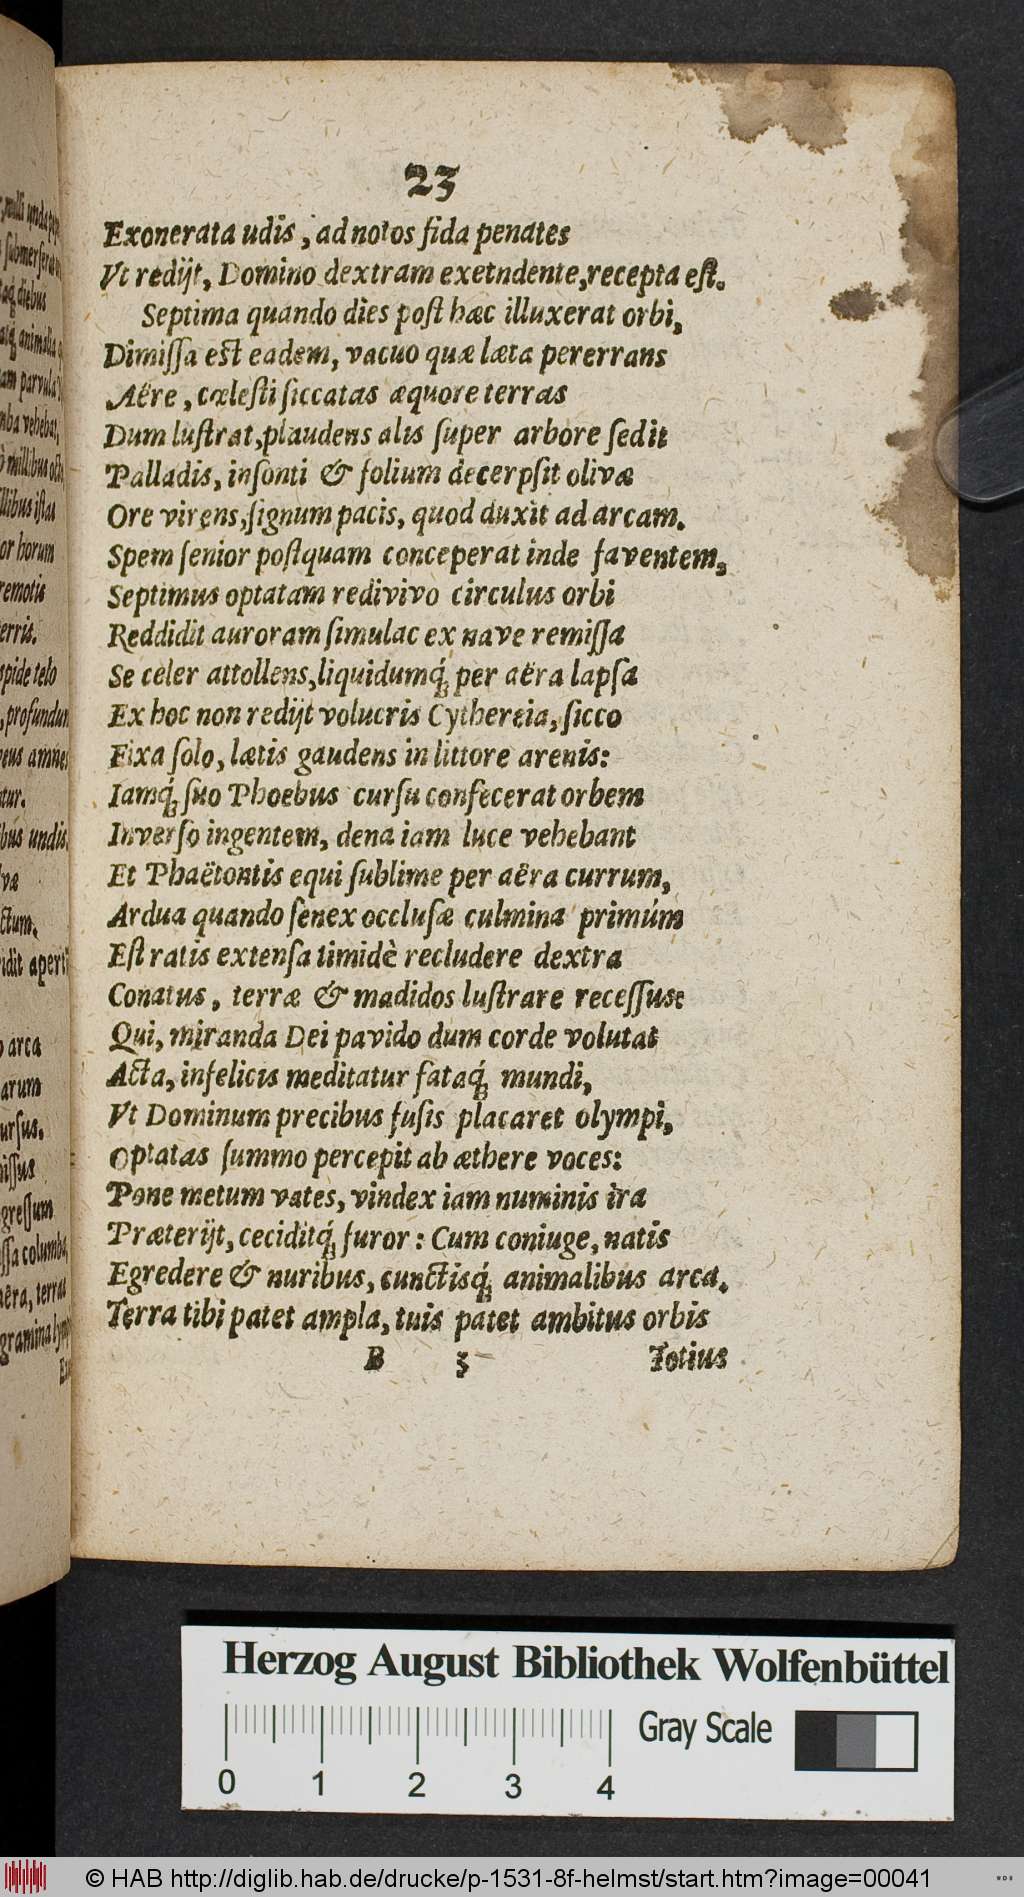 23
Exonerata udis, ad notos fida penates
Vt redijt, Domino dextram exetndente, recepta eſt.
Septima quando dies poſt hæc illuxerat orbi,
Dimiſſa eſt eadem, vacuo quæ læta pererrans
Aëre, cœleſti ſiccatas æquore terras
Dum luſtrat, plaudens alis ſuper arbore ſedit
Palladis, inſonti & folium decerpſit olivæ
Ore virens, ſignum pacis, quod duxit ad arcam.
Spem ſenior poſtquam conceperat inde faventem,
Septimus optatam redivivo circulus orbi
Reddidit auroram ſimulac ex nave remiſſa
Se celer attollens, liquidumq́; per aëra lapſa
Ex hoc non redijt volucris Cythereia, ſicco
Fixa ſolo, lætis gaudens in littore arenis:
Iamq́; ſuo Phoebus curſu confecerat orbem
Inverſo ingentem, dena iam luce vehebant
Et Phaëtontis equi ſublime per aëra currum,
Ardua quando ſenex occluſæ culmina primúm
Eſt ratis extenſa timidè recludere dextra
Conatus, terræ & madidos luſtrare receſſus:
Qui, miranda Dei pavido dum corde volutat
Acta, infelicis meditatur fataq́; mundi,
Vt Dominum precibus fuſis placaret olympi,
Optatas ſummo percepit ab æthere voces:
Pone metum vates, vindex iam numinis ira
Præterijt, ceciditq́; furor: Cum coniuge, natis
Egredere & nuribus, cunctisq́; animalibus arca.
Terra tibi patet ampla, tuis patet ambitus orbis
B 3 Totius
Herzog August Bibliothek Wolfenbüttel
Gray Scale
0 1 2 3 4
© HAB http://diglib.hab.de/drucke/p-1531-8f-helmst/start.htm?image=00041